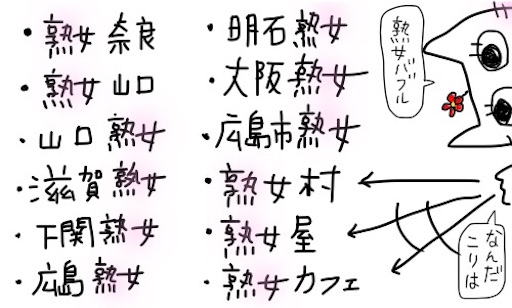 ・熟女 奈良
・熟女 山口
・山口 熟女
・滋賀 熟女
・下関 熟女
・広島 熟女
・明石 熟女
・大阪 熟女
・広島市 熟女
・熟女 村
・熟女 屋
・熟女 カフェ
熟女バブル
なんだ
こりは